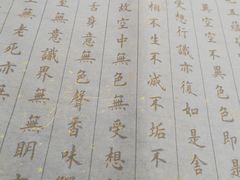 異空空不異色色即是
受想行識亦復如是舍
相不生不滅不垢不
故空中無色無受想
舌身意無色聲香味
無意識界無無明
無老死亦無